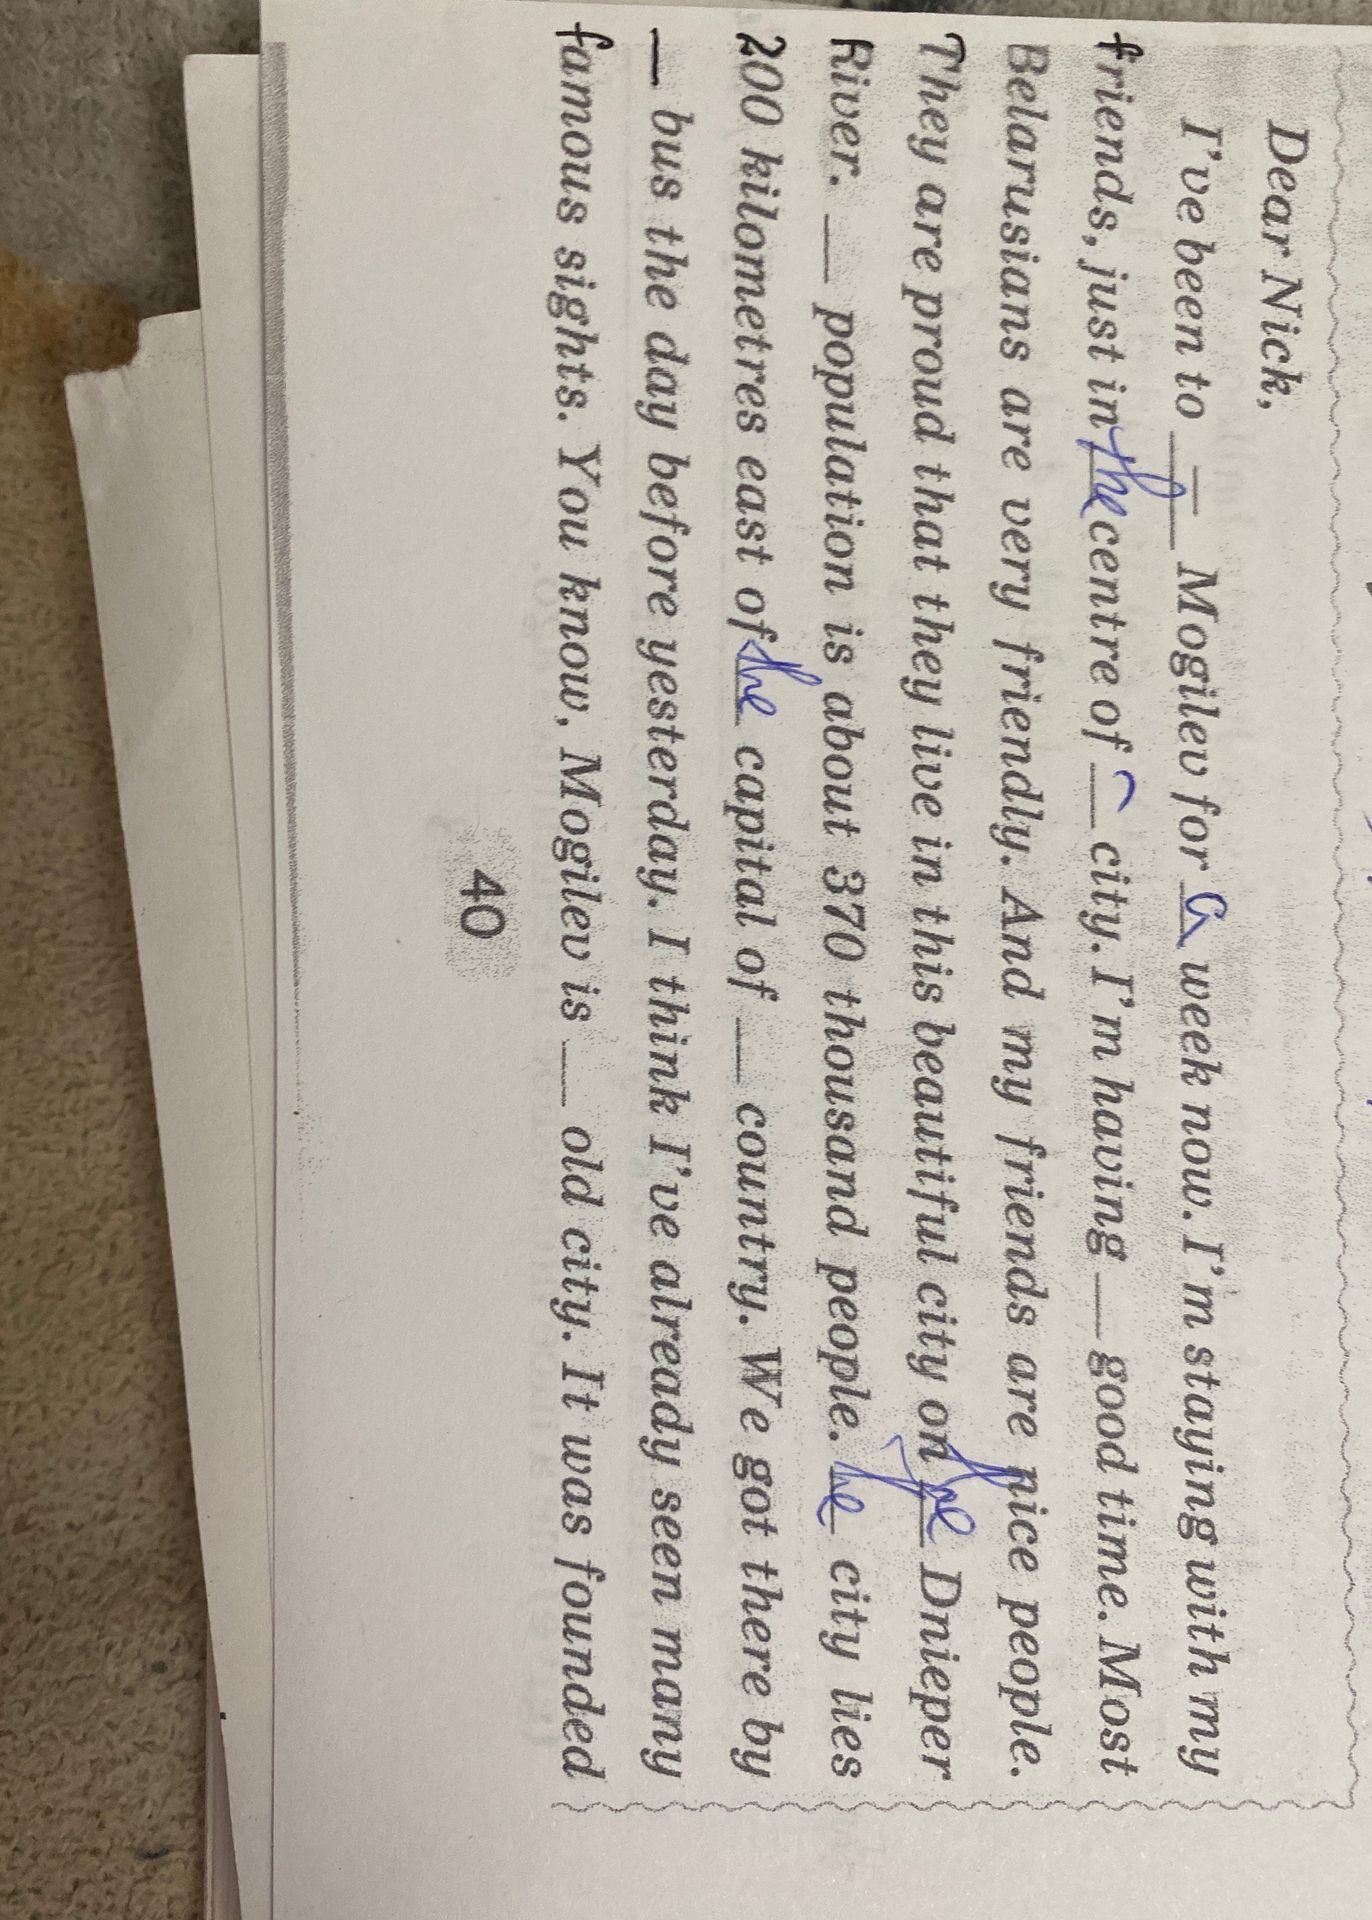 Dear Nick,
I've been to — Mogilev for a week now. I'm staying with my
friends, just in the centre of __ city. I'm having __ good time. Most
Belarusians are very friendly. And my friends are nice people.
They are proud that they live in this beautiful city on the Dnieper
River. __ population is about 370 thousand people. The city lies
200 kilometres east of the capital of __ country. We got there by
__ bus the day before yesterday. I think I've already seen many
famous sights. You know, Mogilev is __ old city. It was founded
40